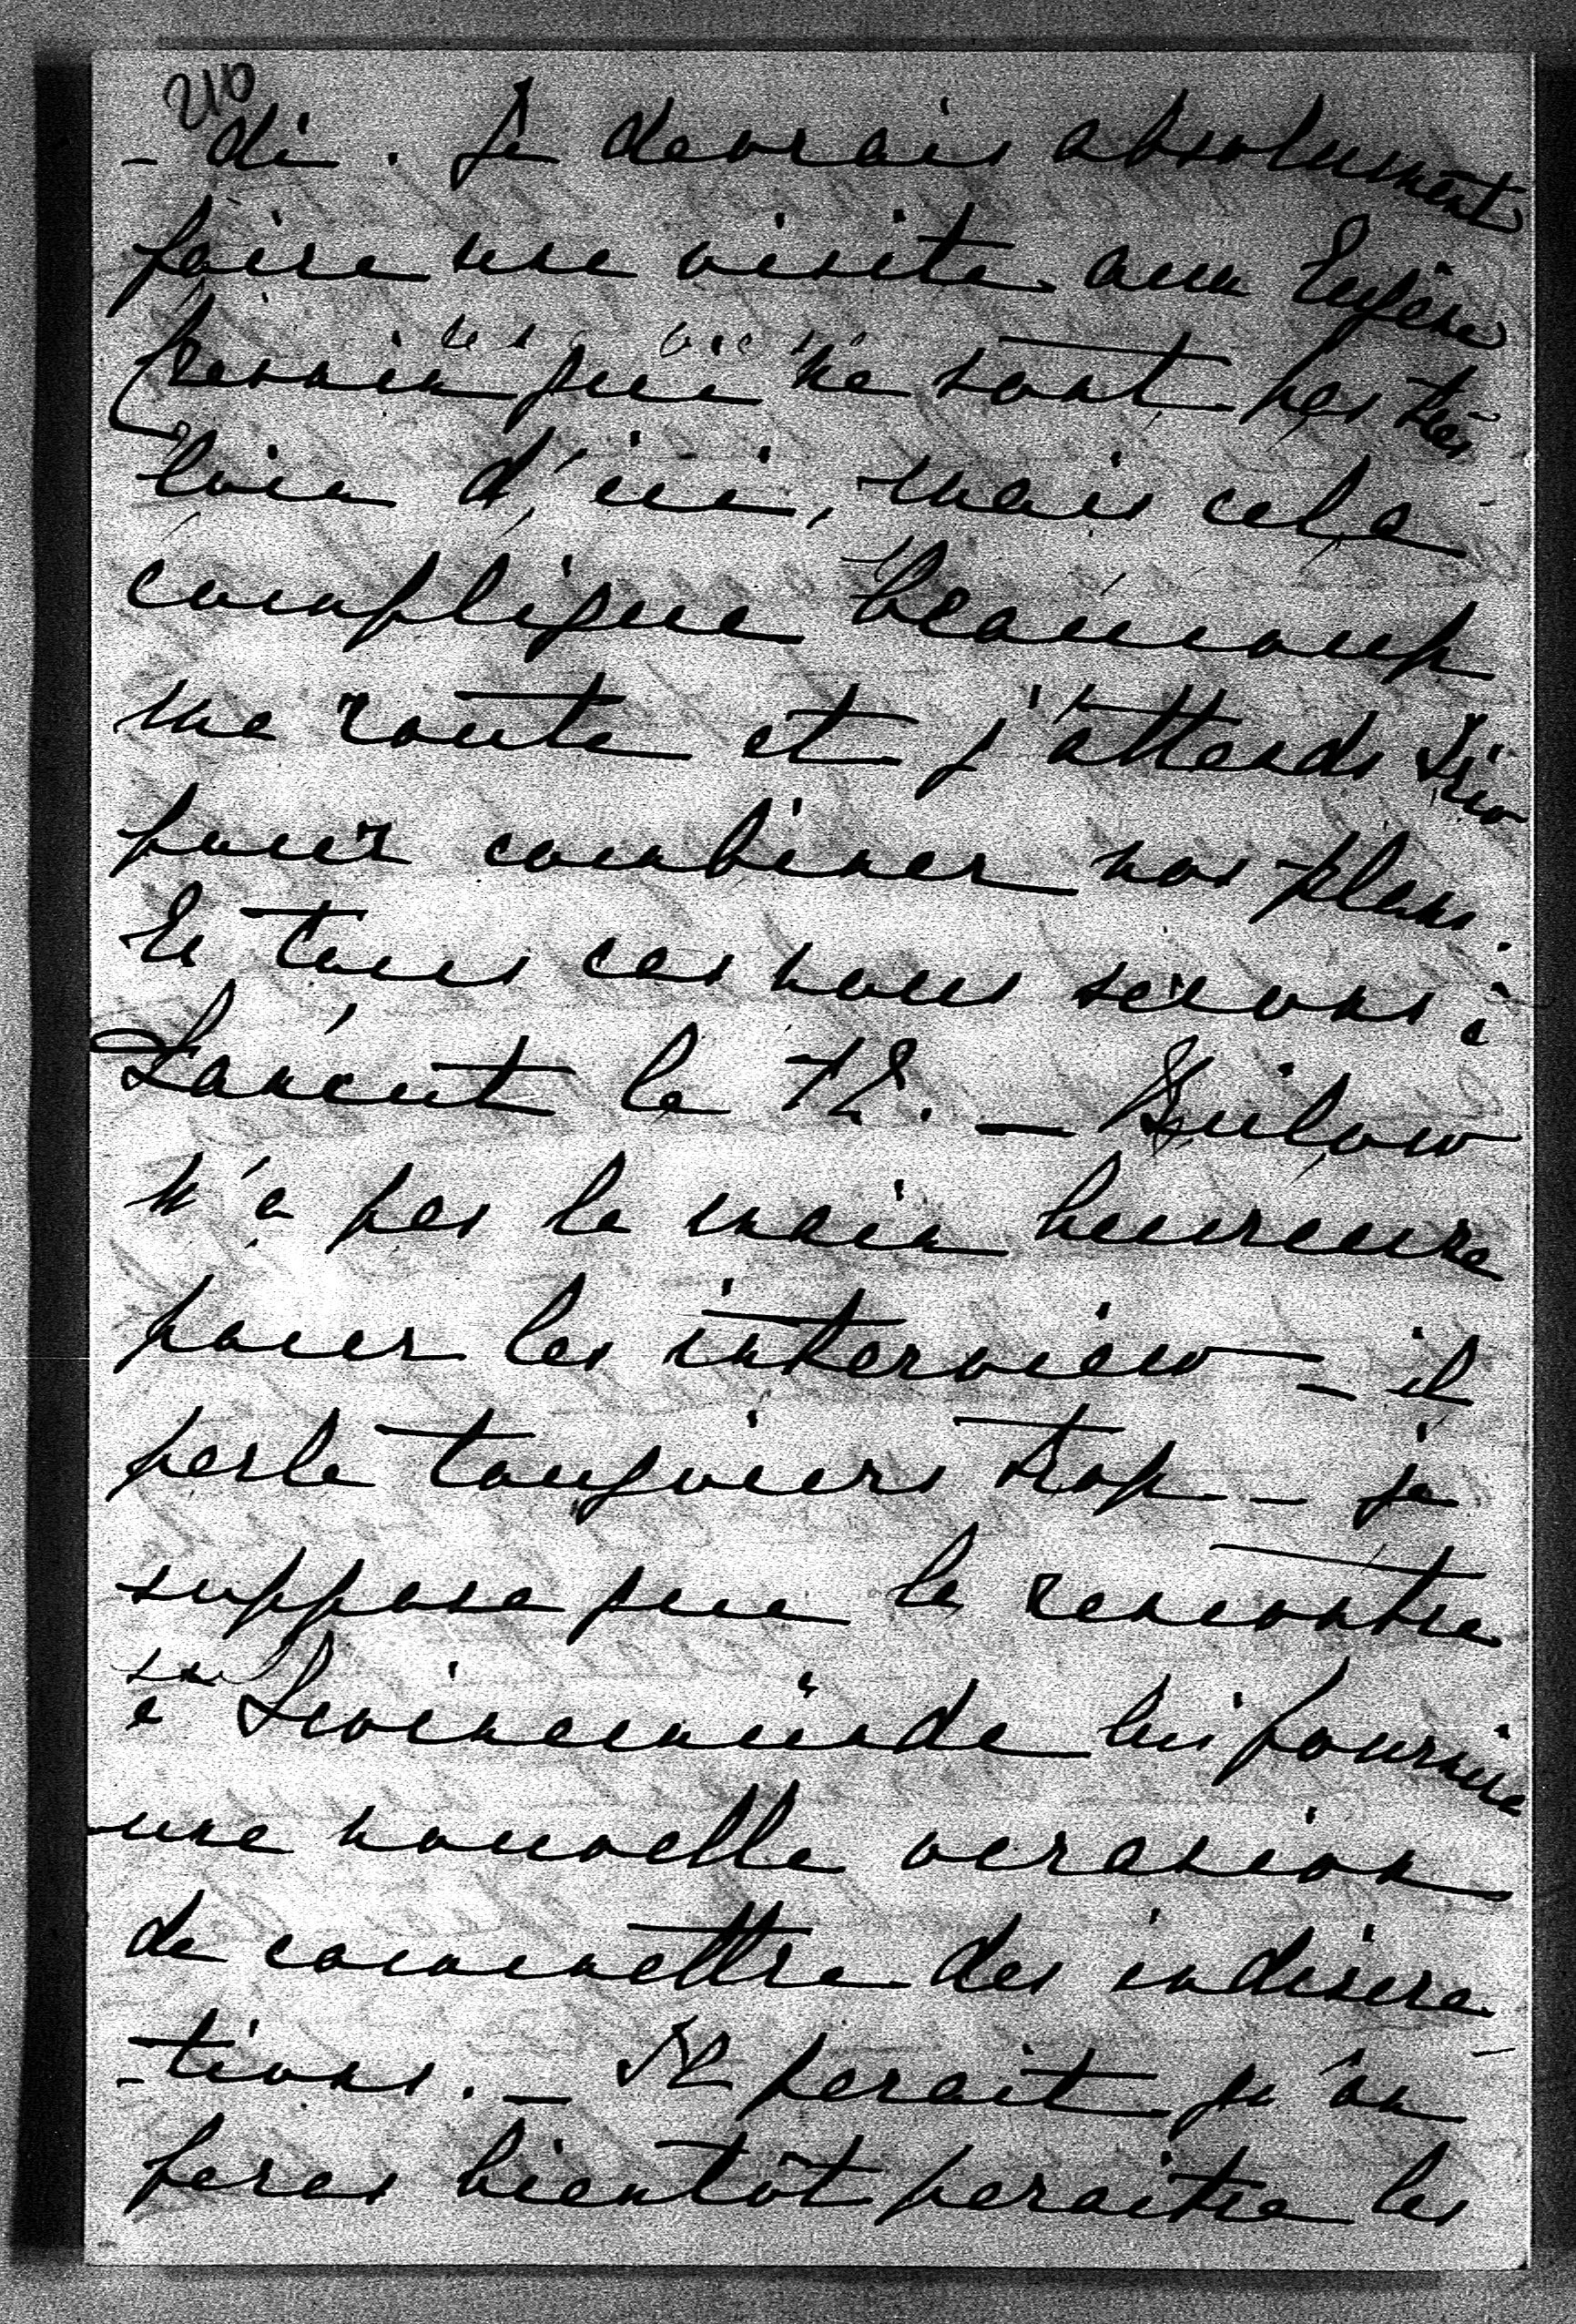 210
- di. Je devrais absolument
faire une visite aux Eugène
qui ne sont pas très
loin d'ici, mais cela
complique beaucoup
ma route et j'attends
pour combiner nos plans.
En tous cas nous serons à
Lancut le 12. — Bülow
n'a pas la main heureuse
pour les interview — il
parle toujours trop — je
suppose que la rencontre
à Swinemünde lui fournira
une nouvelle occasion
de commettre des indiscré
-tions. — Il parait qu'on
feras bientôt paraitre les